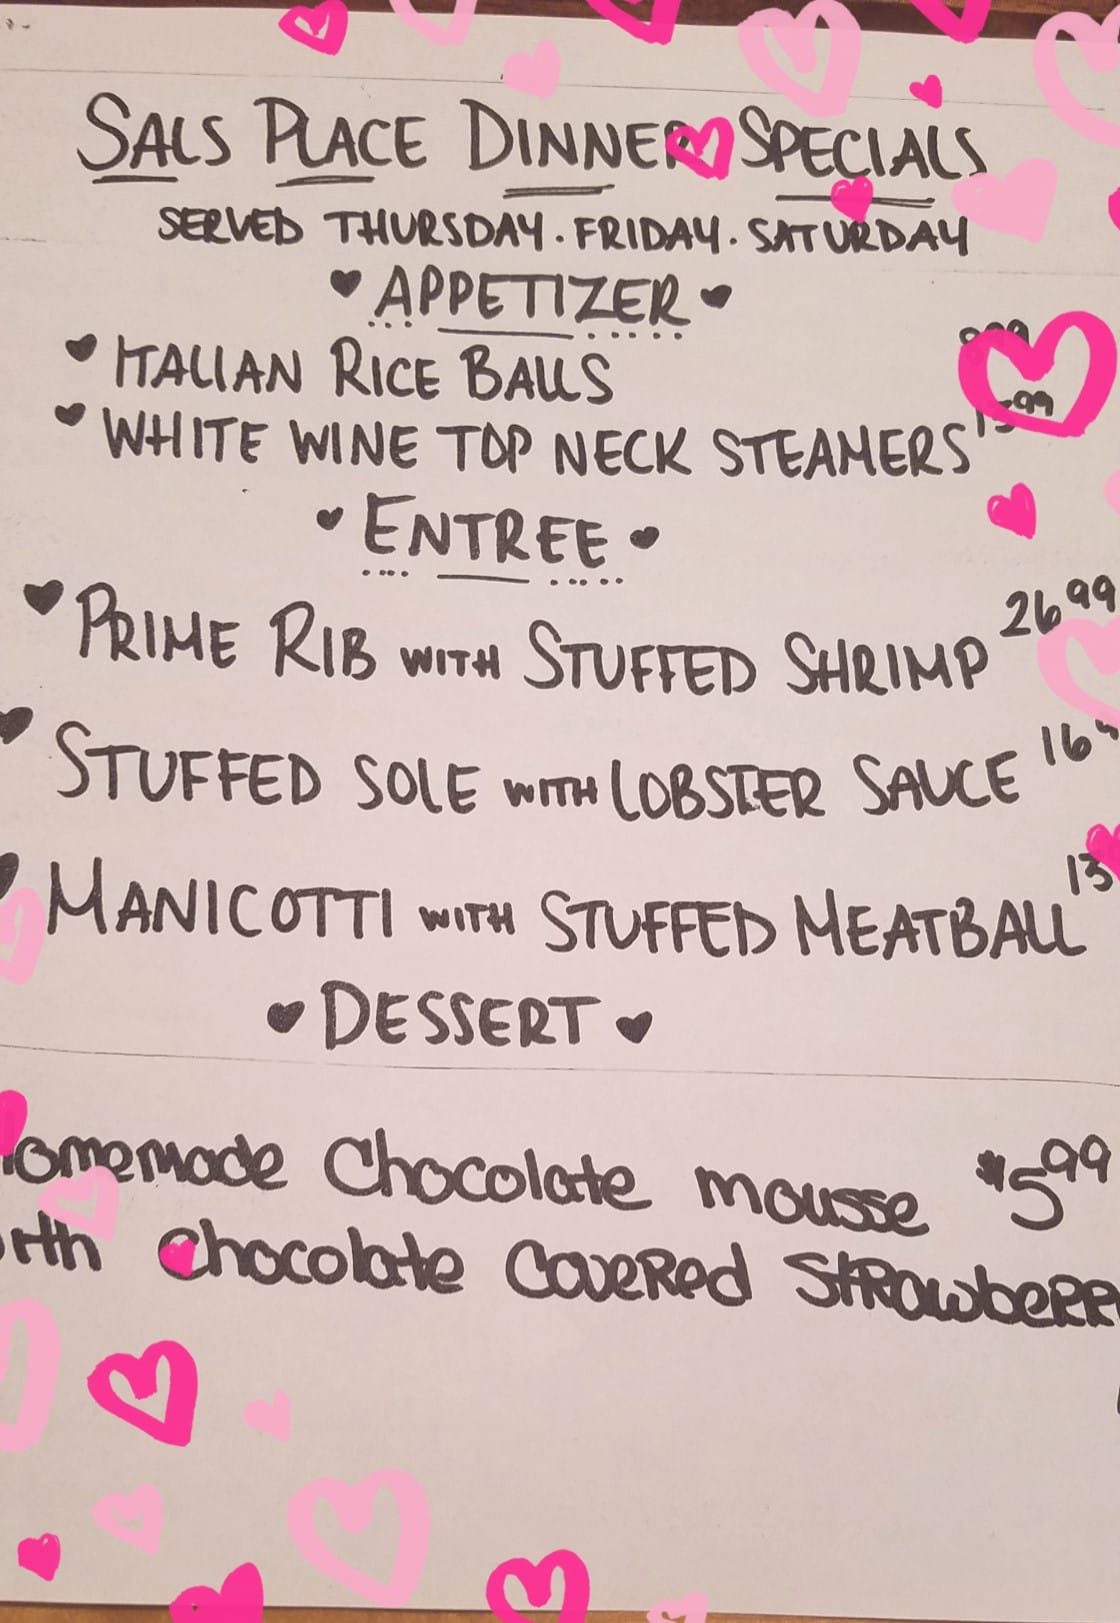 SALS PLACE DINNER SPECIALS
SERVED THURSDAY. FRIDAY. SATURDAY
APPETIZER
ITALIAN RICE BALLS
WHITE WINE TOP NECK STEAMERS
ENTREE
PRIME RIB WITH STUFFED SHRIMP 26 99
STUFFED SOLE WITH LOBSTER SAUCE 16
MANICOTTI WITH STUFFED MEATBALL 13
DESSERT
Homemade Chocolate mousse $5 99
chocolate COVERED STRAWBERR